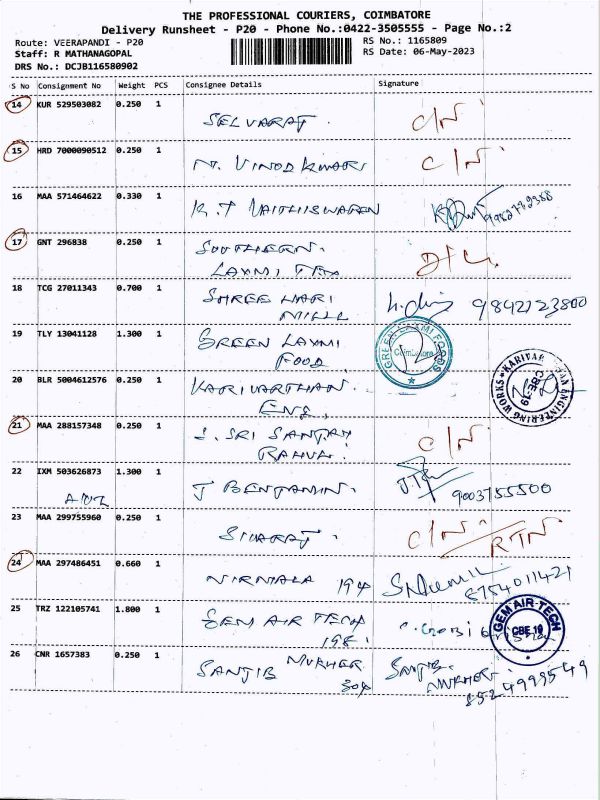 THE PROFESSIONAL COURIERS, COIMBATORE
Delivery Runsheet - P20 - Phone No.:0422-3505555 - Page No.:2
Route: VEERAPANDI - P20
Staff: R MATHANAGOPAL
DRS No.: DCJB116580902
RS No.: 1165809
RS Date: 06-May-2023
S No Consignment No Weight PCS Consignee Details Signature
14 KUR 529503082 0.250 1 SELVARAJ. C/N
15 HRD 7000090512 0.250 1 N. VINOD KUMAR C/N
16 MAA 571464622 0.330 1 K.T VAITHISWAREN
17 GNT 296838 0.250 1 SOUTHERN.
LAXMI TEX
18 TCG 27011343 0.700 1 SHREE HARI 9842723800
MILLS
19 TLY 13041128 1.300 1 GREEN LAXMI
FOOD
GREEN LAXMI FOODS
Coimbatore
20 BLR 5004612576 0.250 1 KARIVARTHAN.
ENG.
ENGINEERING WORKS
CBE-19
21 MAA 288157348 0.250 1 S. SRI C/N
22 IXM 503626873 1.300 1 J BENJAMIN. 9003755500
23 MAA 299755960 0.250 1 SIVARAJ. C/N RTN
24 MAA 297486451 0.660 1 NIRMALA 8754011421
25 TRZ 122105741 1.800 1 GEM AIR TECH
198.
GEM AIR-TECH
CBE 19
26 CNR 1657383 0.250 1 SANJIB MUKHER Sanjib.
8524999549